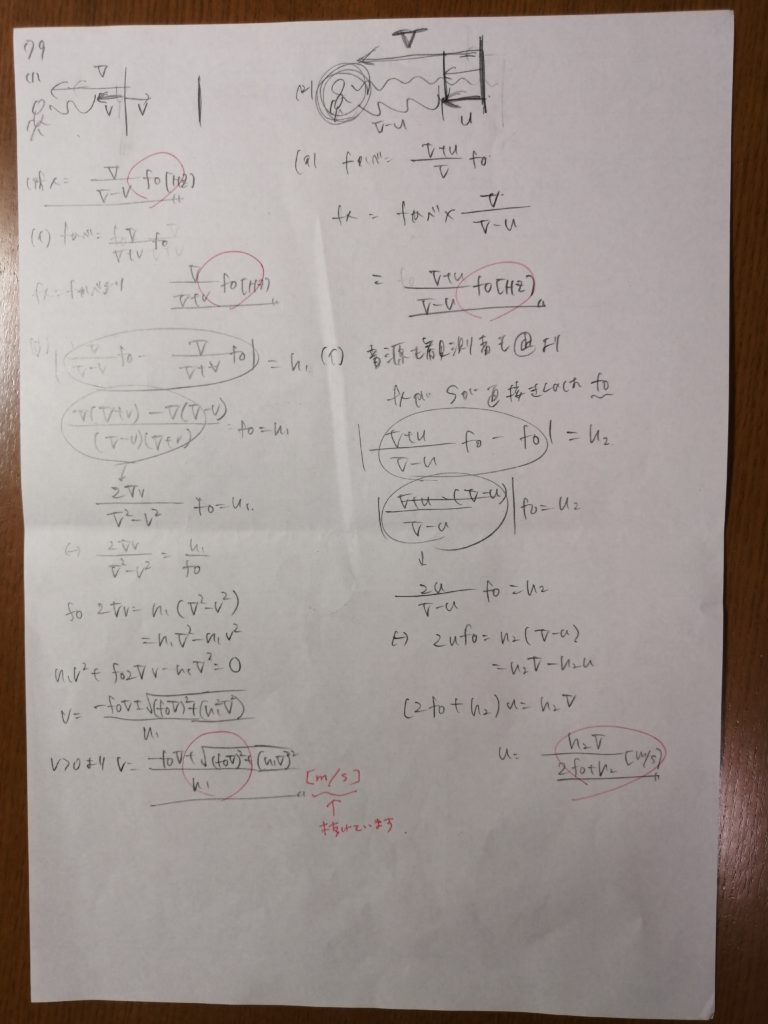 79
(1)
V
V
v
(ア)f人 = V/(V-v) f0 [Hz]
(イ)
f人 = V/(V+v) f0 [Hz]
| V/(V-v) f0 - V/(V+v) f0 | = n1
(V(V+v) - V(V-v))/((V-v)(V+v)) f0 = n1
↓
2Vv/(V²-v²) f0 = n1
⇔ 2Vv/(V²-v²) = n1/f0
f0 2Vv = n1 (V²-v²)
= n1V² - n1v²
n1v² + f0 2Vv - n1V² = 0
v = (-f0V ± √((f0V)² + (n1²V²)))/n1
v>0より v = (-f0V + √((f0V)² + (n1V)²))/n1
[m/s]
↑
抜けています。
(2)
V
V-u
u
(ア) fかべ = (V+u)/V f0
f人 = fかべ × V/(V-u)
= (V+u)/(V-u) f0 [Hz]
(イ) 音源も観測者も より
直接 f0
| (V+u)/(V-u) f0 - f0 | = n2
| (V+u-(V-u))/(V-u) | f0 = n2
↓
2u/(V-u) f0 = n2
⇔ 2uf0 = n2 (V-u)
= n2V - n2u
(2f0 + n2) u = n2V
u = n2V/(2f0+n2) [m/s]